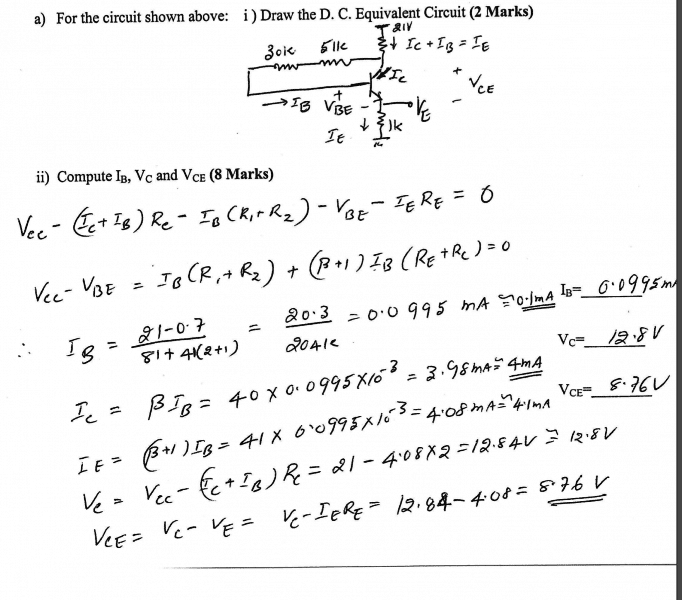 a) For the circuit shown above: i) Draw the D. C. Equivalent Circuit (2 Marks)
21V
30K 51K ↓ Ic + IB = IE
Ic
+ VCE -
→ IB + VBE - VE
IE ↓ 1k
ii) Compute IB, VC and VCE (8 Marks)
Vcc - (Ic + IB) Rc - IB (R1 + R2) - VBE - IE RE = 0
Vcc - VBE = IB (R1 + R2) + (β+1) IB (RE + Rc) = 0
∴ IB = 21-0.7 / 81 + 41(2+1) = 20.3 / 204K = 0.0995 mA ≈ 0.1mA IB= 0.0995m
VC= 12.8V
Ic = βIB = 40 x 0.0995x10^-3 = 3.98mA ≈ 4mA
VCE= 8.76V
IE = (β+1) IB = 41 x 0.0995x10^-3 = 4.08mA ≈ 4.1mA
Vc = Vcc - (Ic + IB) Rc = 21 - 4.08x2 = 12.84V ≈ 12.8V
VCE = Vc - VE = Vc - IERE = 12.84 - 4.08 = 8.76 V